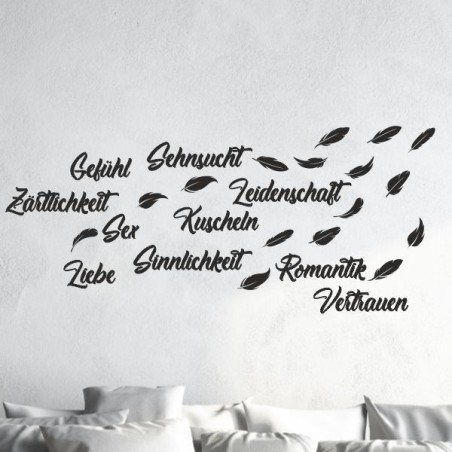 Gefühl
Sehnsucht
Zärtlichkeit
Leidenschaft
Sex
Kuscheln
Liebe
Sinnlichkeit
Romantik
Vertrauen